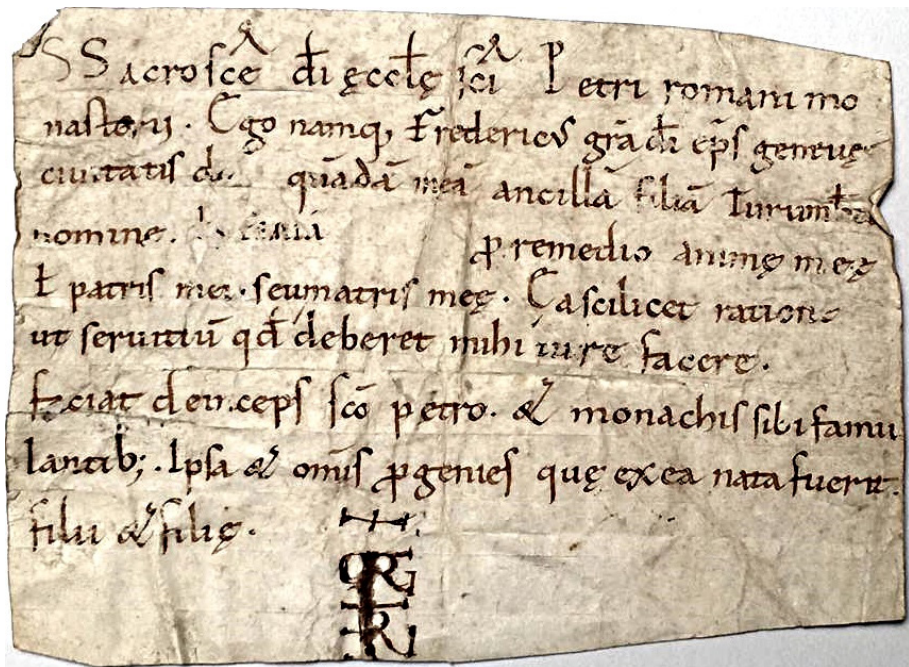 SSacrosc̄e d̄i ęccłę sc̄i Petri romani mo
nasterii. Ego namq; Fredericus gr̄a d̄i ep̄s geneuę
ciuitatis do quādā meā ancillā filiā
nomine. p̱ remedio animę meę
& patris mei. seu matris meę. Ea scilicet ratione
ut seruitiū qđ deberet mihi iure facere.
faciat deinceps sc̄o petro. & monachis sibi famu
lantib;. Ipsa & om̄is p̱genies quę ex ea nata fuerit.
filii & filię.